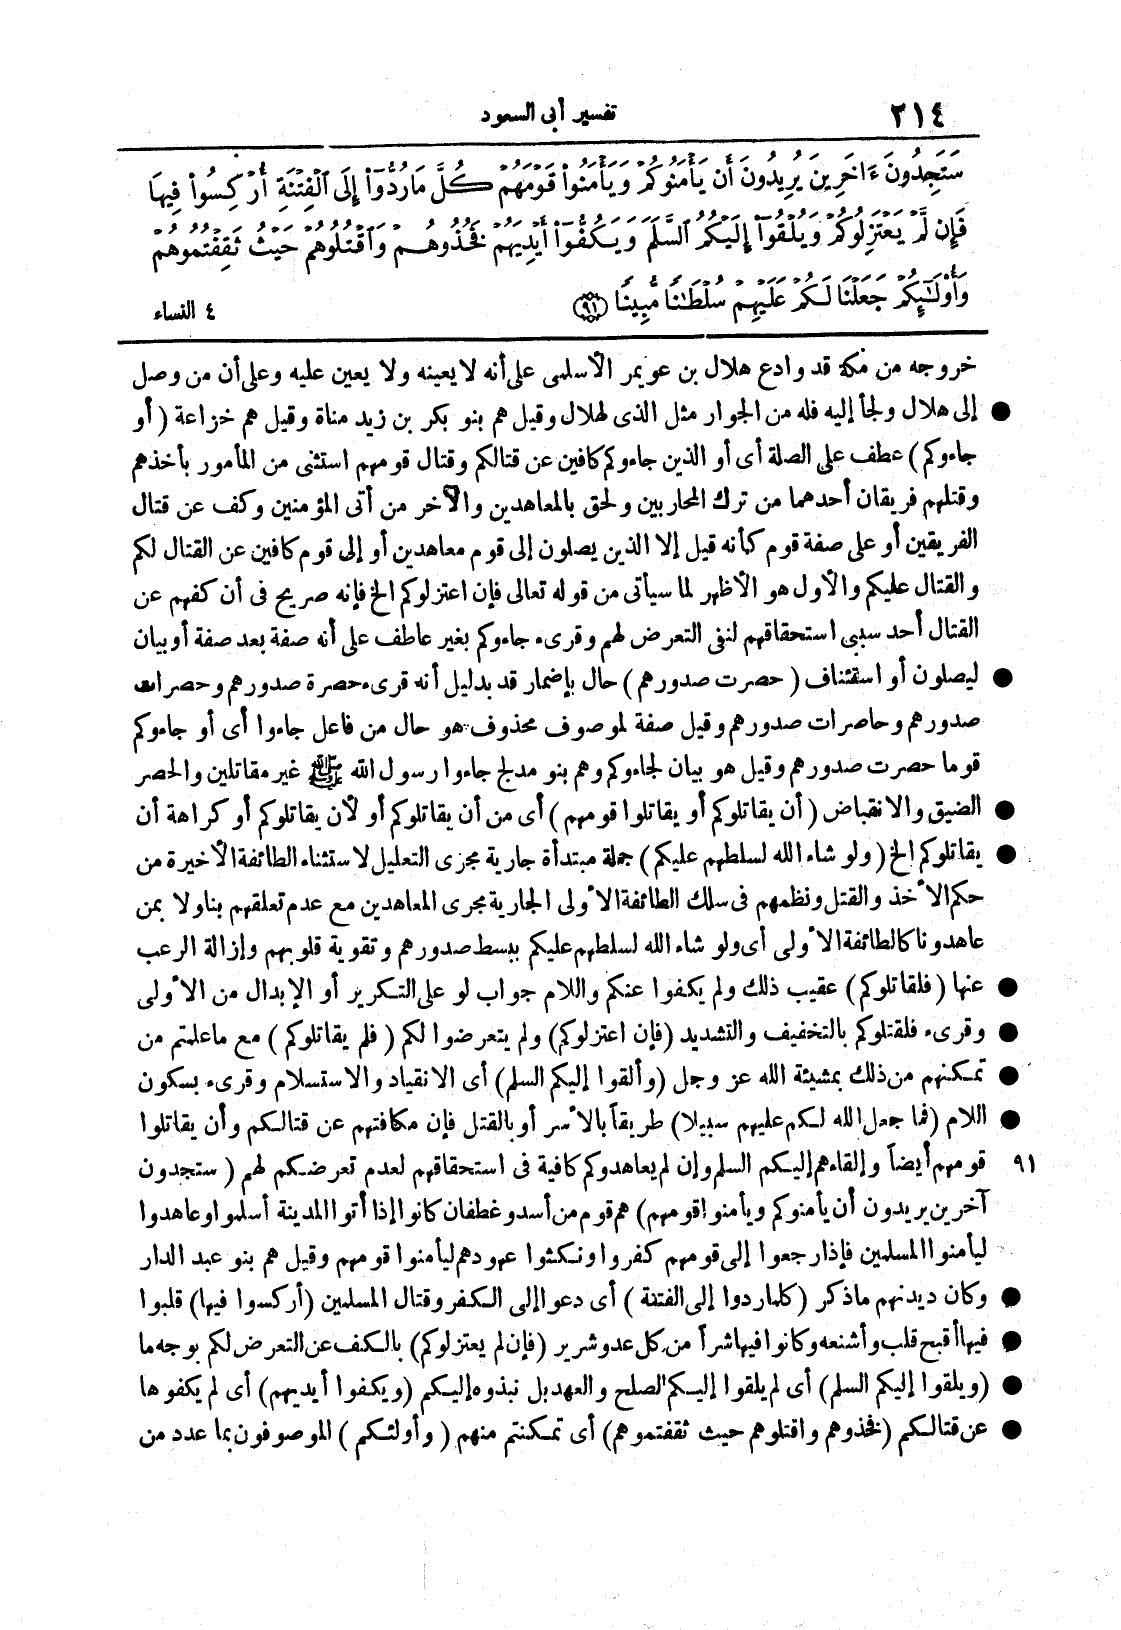 ٢١٤
تفسير أبى السعود
سَتَجِدُونَ ءَاخَرِينَ يُرِيدُونَ أَن يَأْمَنُوكُمْ وَيَأْمَنُوا۟ قَوْمَهُمْ كُلَّ مَا رُدُّوٓا۟ إِلَى ٱلْفِتْنَةِ أُرْكِسُوا۟ فِيهَا
فَإِن لَّمْ يَعْتَزِلُوكُمْ وَيُلْقُوٓا۟ إِلَيْكُمُ ٱلسَّلَمَ وَيَكُفُّوٓا۟ أَيْدِيَهُمْ فَخُذُوهُمْ وَٱقْتُلُوهُمْ حَيْثُ ثَقِفْتُمُوهُمْ
وَأُو۟لَٰٓئِكُمْ جَعَلْنَا لَكُمْ عَلَيْهِمْ سُلْطَٰنًا مُّبِينًا ﴿٩١﴾ ٤ النساء
خروجه من مكة قد وادع هلال بن عويمر الأسلمى على أنه لا يعينه ولا يعين عليه وعلى أن من وصل
● إلى هلال ولجأ إليه فله من الجوار مثل الذى لهلال وقيل هم بنو بكر بن زيد مناة وقيل هم خزاعة ( أو
جاءوكم ) عطف على الصلة أى أو الذين جاءوكم كافين عن قتالكم وقتال قومهم استثنى من المأمور بأخذهم
وقتلهم فريقان أحدهما من ترك المحاربين ولحق بالمعاهدين والآخر من أتى المؤمنين وكف عن قتال
الفريقين أو على صفة قوم كأنه قيل إلا الذين يصلون إلى قوم معاهدين أو إلى قوم كافين عن القتال لكم
والقتال عليكم والأول هو الأظهر لما سيأتى من قوله تعالى فإن اعتزلوكم الخ فإنه صريح فى أن كفهم عن
القتال أحد سببى استحقاقهم لنفى التعرض لهم وقرىء جاءوكم بغير عاطف على أنه صفة بعد صفة أو بيان
● ليصلون أو استئناف ( حصرت صدورهم ) حال بإضمار قد بدليل أنه قرىء حصرة صدورهم وحصرات
صدورهم وحاصرات صدورهم وقيل صفة لموصوف محذوف هو حال من فاعل جاءوا أى أو جاءوكم
قوما حصرت صدورهم وقيل هو بيان لجاءوكم وهم بنو مدلج جاءوا رسول الله ﷺ غير مقاتلين والحصر
● الضيق والانقباض ( أن يقاتلوكم أو يقاتلوا قومهم ) أى من أن يقاتلوكم أو لأن يقاتلوكم أو كراهة أن
● يقاتلوكم الخ ( ولو شاء الله لسلطهم عليكم ) جملة مبتدأة جارية مجرى التعليل لاستثناء الطائفة الأخيرة من
حكم الأخذ والقتل ونظمهم فى سلك الطائفة الأولى الجارية مجرى المعاهدين مع عدم تعلقهم بنا ولا بمن
عاهدونا كالطائفة الأولى أى ولو شاء الله لسلطهم عليكم ببسط صدورهم وتقوية قلوبهم وإزالة الرعب
● عنها ( فلقاتلوكم ) عقيب ذلك ولم يكفوا عنكم واللام جواب لو على التكرير أو الإبدال من الأولى
● وقرىء فلقتلوكم بالتخفيف والتشديد (فإن اعتزلوكم) ولم يتعرضوا لكم ( فلم يقاتلوكم ) مع ما علمتم من
● تمكنهم من ذلك بمشيئة الله عز وجل (وألقوا إليكم السلم) أى الانقياد والاستسلام وقرىء بسكون
● اللام (فما جعل الله لكم عليهم سبيلا) طريقاً بالأسر أو بالقتل فإن مكافتهم عن قتالكم وأن يقاتلوا
٩١ قومهم أيضاً وإلقاءهم إليكم السلم وإن لم يعاهدوكم كافية فى استحقاقهم لعدم تعرضكم لهم ( ستجدون
آخرين يريدون أن يأمنوكم ويأمنوا قومهم) هم قوم من أسد وغطفان كانوا إذا أتوا المدينة أسلموا وعاهدوا
ليأمنوا المسلمين فإذا رجعوا إلى قومهم كفروا ونكثوا عهودهم ليأمنوا قومهم وقيل هم بنو عبد الدار
● وكان ديدنهم ما ذكر (كلما ردوا إلى الفتنة ) أى دعوا إلى الكفر وقتال المسلمين (أركسوا فيها) قلبوا
● فيها أقبح قلب وأشنعه وكانوا فيها شراً من كل عدو شرير (فإن لم يعتزلوكم) بالكف عن التعرض لكم بوجه ما
● (ويلقوا إليكم السلم) أى لم يلقوا إليكم الصلح والعهد بل نبذوه إليكم (ويكفوا أيديهم) أى لم يكفوها
● عن قتالكم (فخذوهم واقتلوهم حيث ثقفتموهم) أى تمكنتم منهم ( وأولئكم ) الموصوفون بما عدد من